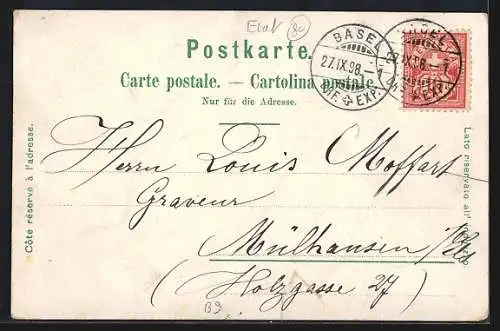 Etat 80
Postkarte.
Carte postale. — Cartolina postale.
Nur für die Adresse.
BASEL
27.IX.98.—1
BRF. EXP.
BASEL
27.IX.98.—1
EXP.
Côté réservé à l'adresse.
Lato riservato all'
Herrn Louis Moffart
Graveur
Mülhausen i/Els
(Holzgasse 27)
B9